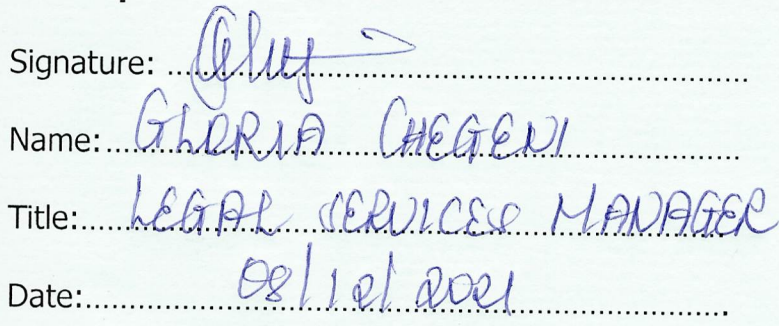 Signature:
Name: GLORIA CHEGENI
Title: LEGAL SERVICES MANAGER
Date: 08/12/2021